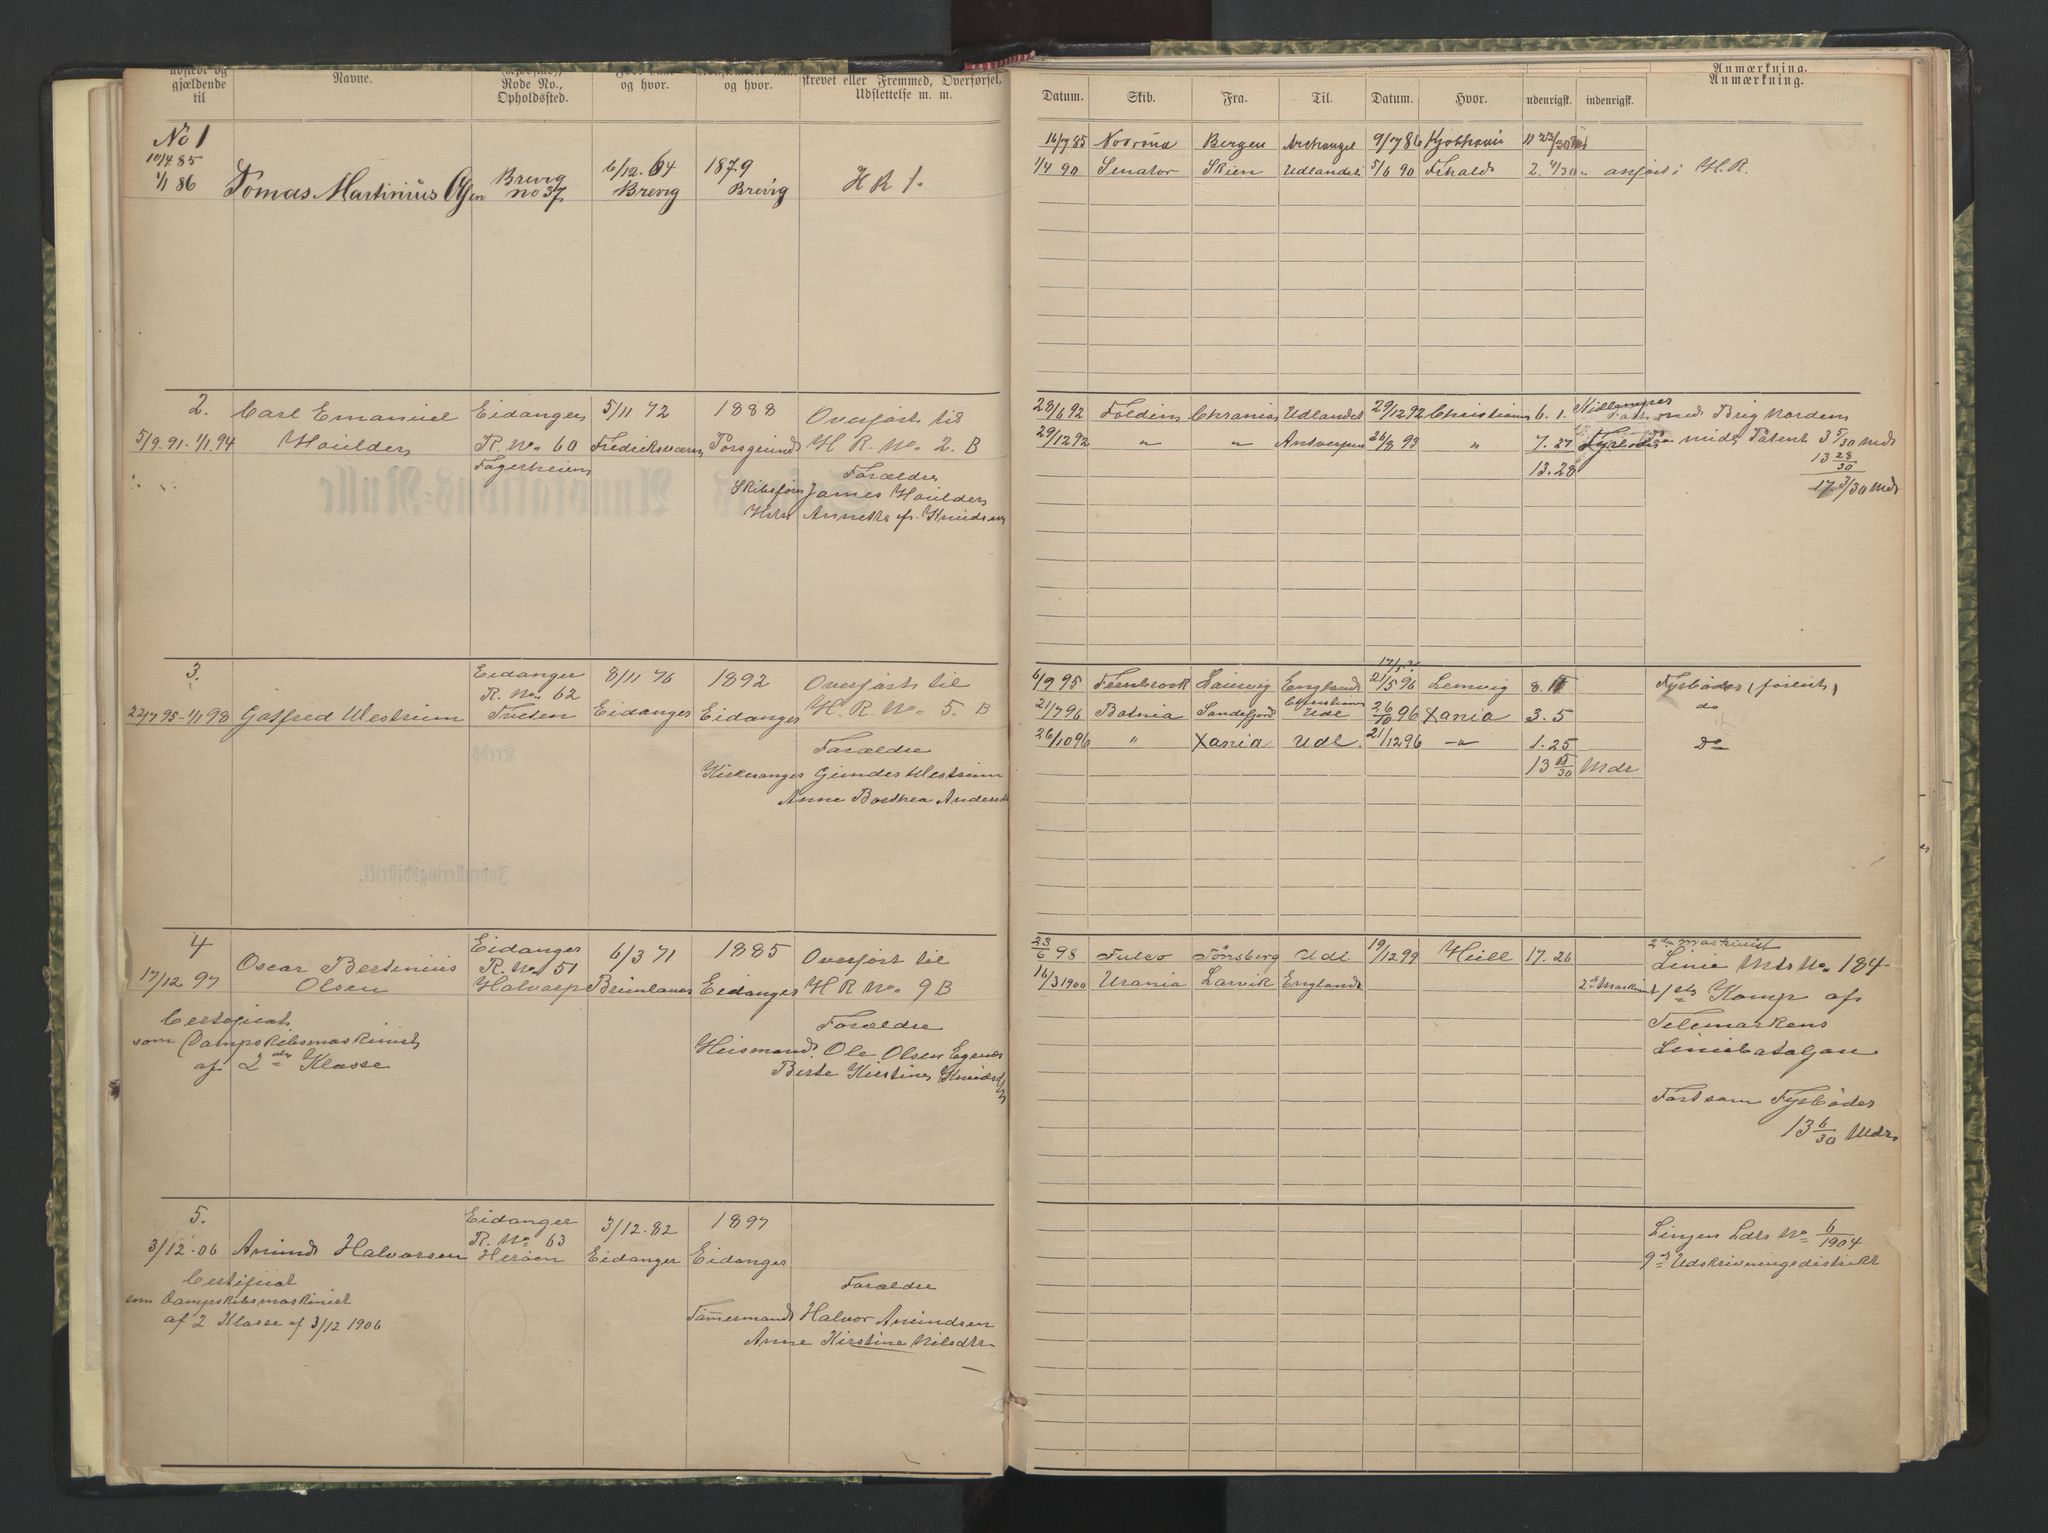 gjældende
til
Navne.
Rode No.,
Opholdssted.
og hvor.
og hvor.
skrevet eller Fremmed, Overførsel,
Udslettelse m. m.
Datum.
Skib.
Fra.
Til.
Datum.
Hvor.
udenrigsk.
indenrigsk.
Anmærkning.
Anmærkning.
No 1
10/4 85
1/1 86
Tomas Martinius Olsen
Brevig
no 37
6/12.64
Brevig
1879
Brevig
H R 1.
16/7 85 Bergen Archangel 9/7 86
1/4 90 Senator Skien Udlandet 5/6 90 2. 4/30 anført i H.R.
2.
5/9.91-1/1 94
Carl Emanuel
Houlder
Eidanger
R. No 60
Fagerheim
5/11 72
Fredriksværn
1888
Porsgrund
Overført til
H. R. No 2. B
Forældre
Skibsfører James Houlder
Annette f. Knudsen
28/6 92 Foldin Chrania Udlandet 29/12 92 Christiania 6. 1.
med Brig Norden
29/12 92 " " Antverpen 26/8 93 " 7. 27 Patent 3 5/30 Mdr
13. 28
13 28/30
17. 3/30 Mdr
3.
22/7 95-1/1 98
Gotfred Westrum
Eidanger
R. No 62
Trieten
8/11 76
Eidanger
1892
Eidanger
Overført til
H. R. No 5. B
Forældre
Kirkesanger Gunder Westrum
Anne Borthea Andersdt
6/9 95 Fernbrook Laurvig England 21/5 96 Lemvig
Fyrbøder (forlist)
21/7 96 Botnia Sandefjord Udl 26/10 96 Xania 3. 5
do
26/10 96 " Xania Udl. 21/12 96 -"- 1. 25
Do
Mdr
4
17/12 97
Oscar Bertinius
Olsen
Eidanger
R. No 51
Halvarp
6/3 71
Brunlanes
1885
Eidanger
Overført til
H R No 9 B
Certificat
som Dampskibsmaskinist
af 2den Klasse
Forældre
Husmand Ole Olsen
Berte Kirstine Knudsd
23/6 98 Tønsberg Udl 19/12 99 Hull 17. 26
2den Maskinist
Linie Mds No 184
16/3 1900 Urania Larvik England 2den Maskinist
1ste Komp af
Telemarkens
Liniebataljon
Fart som Fyrbøder
13 6/30 Mdr
5.
3/12-06
Amund Halvorsen
Eidanger
R. No 63
Herøen
3/12-82
Eidanger
1897
Eidanger
Certificat
som Dampskibsmaskinist
af 2 Klasse af 3/12 1906
Forældre
Tømmermand Halvor Amundsen
Anne Kirstine Nilsdtr
Linjen Ldrs No 6/1904
9de Udskrivningsdistrikt